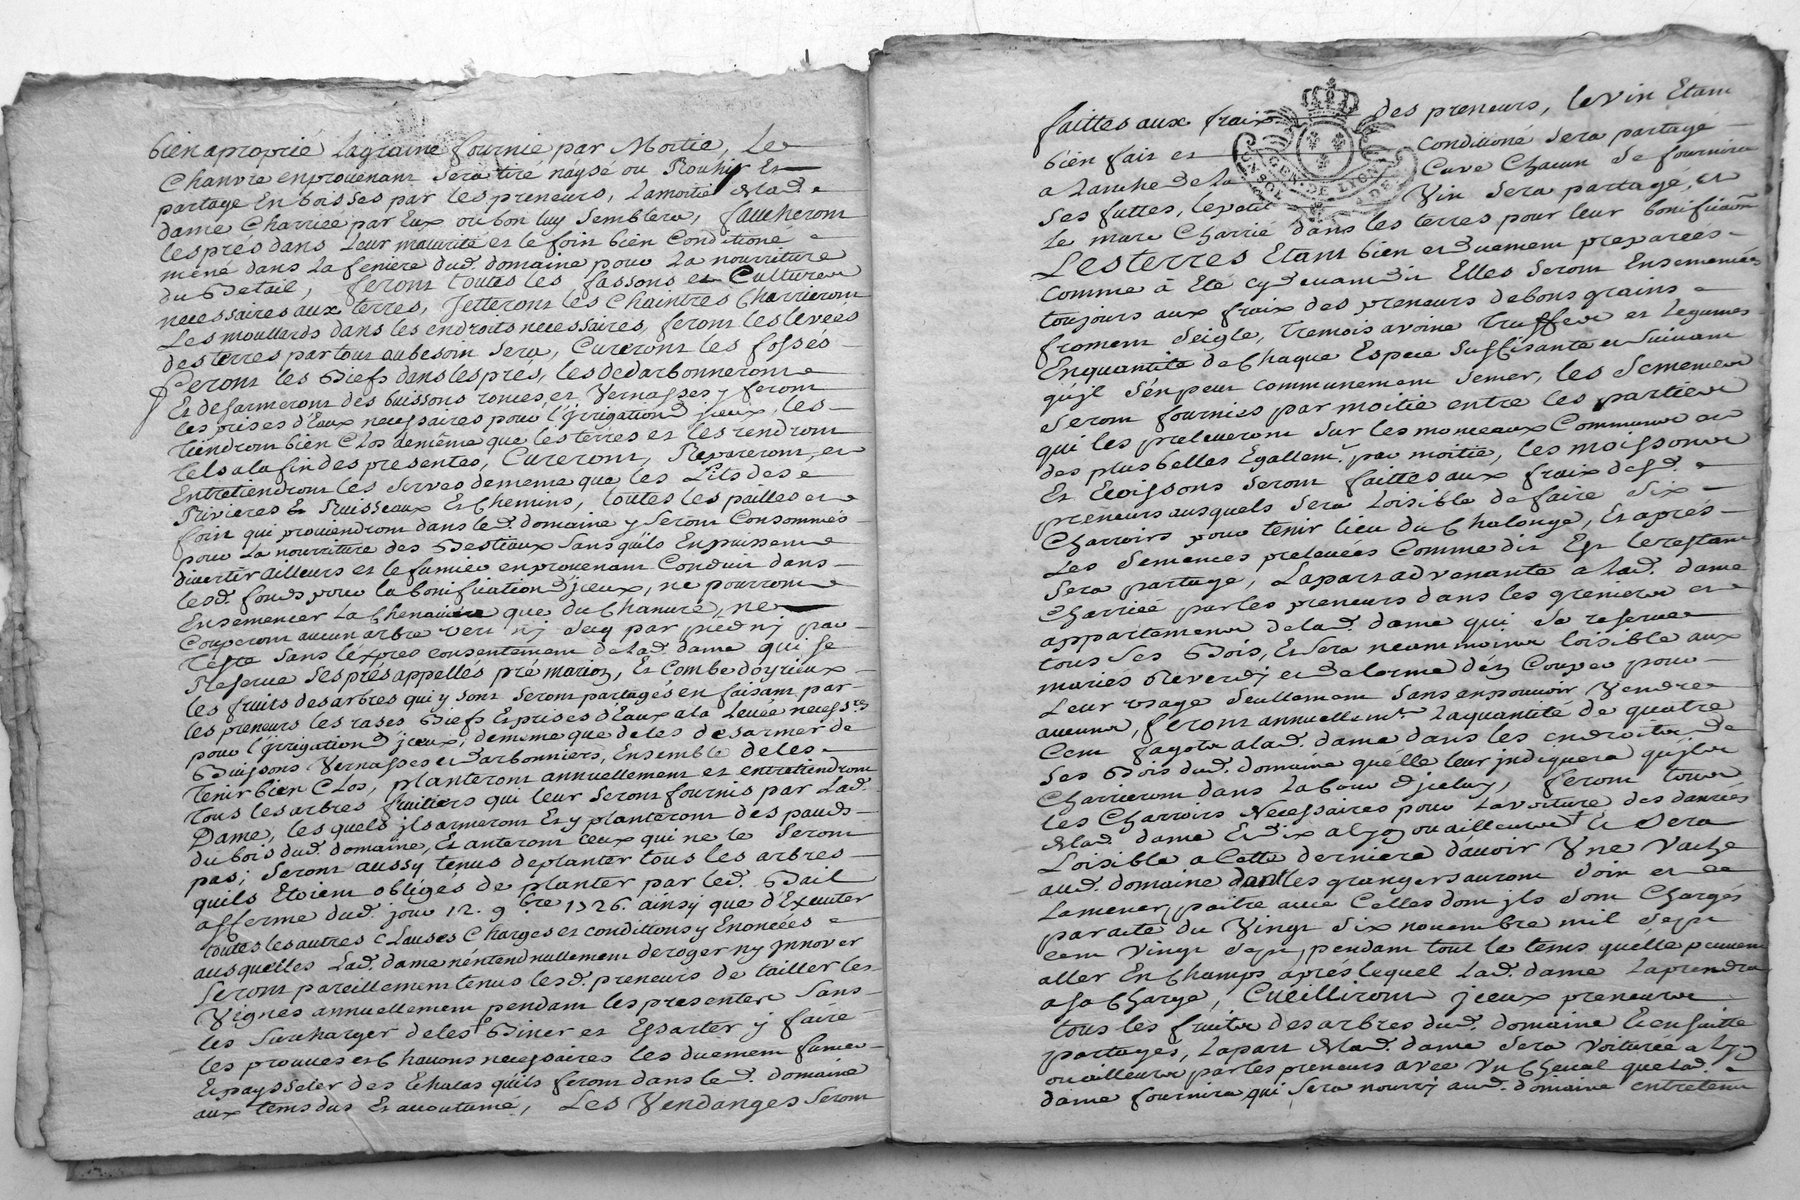 bien aproprié Lagraine fournie par Moitié, Le
Chanvre enprouenant sera tiré naysé ou Rouhir Et
partagé En boisses par les preneurs, Lamoitié alad.
dame Charriée par Eux ou bon luy Semblera, faucheront
les prés dans Leur maturité et le foin bien Conditioné
mené dans La feniere dud. domaine pour La nourriture
du Betail, feront toutes les fassons et Cultures
necessaires aux terres, Jetteront les Chaintres Charrieront
Les moullards dans les endroits necessaires, feront les levées
des terres partout au besoin sera, Cureront les fossés
feront les Biefs dans les prés, les dedarbonneront
Et desarmeront des buissons ronces et Vernasses y feront
les prises d'Eaux necessaires pour l'jrrigation d'jceux, les
tiendront bien Clos demême que les terres et les rendront
tels a la fin des presentes, Cureront, Repareront, et
Entretiendront les Serves dememe que les Lits des
Rivieres Et Ruisseaux Et Chemins, toutes les pailles et
foin qui prouiendront dans led. domaine y seront Consommés
pour La nourriture des Bestiaux sans quils En puissent
divertir ailleurs et le fumier en prouenant Conduit dans
lesd. fonds pour la bonification d'jceux, ne pourront
Ensemencer La Cheneviere que du Chanvre, ne
Couperont aucun arbre vert nj secq par pied nj par
teste sans l'expres consentement de lad. dame qui se
Reserve ses prés appellés pré marion, Et Combe doyrieux
les fruits des arbres qui y sont seront partagés en faisant par
les preneurs les rases Biefs Et prises d'Eaux a la Levée necess.res
pour l'jrrigation d'jceux, dememe que de les desarmer de
Buissons Vernasses et darbonniers, Ensemble de les
tenir bien Clos, planteront annuellement et entretiendront
tous les arbres fruitiers qui leur seront fournis par Lad.
Dame, les quels jls armeront Et y planteront des pauds
du bois dud. domaine, Et anteront ceux qui ne le seront
pas; Seront aussy tenus de planter tous les arbres
quils Etoient obligés de planter par led. Bail
afferme dud. jour 12. 9bre 1726. ainsy que d'Executer
toutes les autres Clauses Charges et conditions y Enoncées
ausquelles Lad. dame n'entend nullement deroger ny Jnnover
Seront pareillement tenus lesd. preneurs de tailler les
Vignes annuellement pendant les presentes sans
les Surcharger de les Biner et Essarter y faire
les prouues et Chavons necessaires les duement fumer
Et paysseler des Echalas quils feront dans led. domaine
aux tems dus Et accoutumé, Les Vendanges seront
faittes aux fraix des preneurs, le vin Etant
bien fait et conditioné sera partagé
a Lanche de la Cuve Chacun se fournira
ses futtes, le petit Vin sera partagé, et
Le marc Charrié dans les terres pour leur bonification
Les terres Etant bien et duement preparées
Comme à Eté cy devant dit Elles seront Ensemencées
toujours aux fraix des preneurs de bons grains
froment seigle, tremois avoine truffes et Legumes
En quantité de Chaque Espece Suffisante et suivant
qu'jl s'en peut communement semer, les semences
seront fournies par moitié entre les parties
qui les preleveront sur les monceaux Communs et
des plus belles Egallem.t par moitié, les moissons
Et Ecoissons seront faittes aux fraix desd.
preneurs ausquels sera loisible de faire six
Charroirs pour tenir lieu du Chalonge, Et aprés
Les Semences prelevées Comme dit Est le restant
sera partagé, La part advenante a lad. dame
Charriée par les preneurs dans les greniers et
appartemens de lad. dame qui se reserve
tous ses Bois, Et sera neanmoins loisible aux
mariés Reverdj et delorme d'en Couper pour
Leur usage seullement sans en pouvoir Vendre
aucuns, feront annuellem.t La quantité de quatre
Cent fagots a lad. dame dans les endroits de
ses Bois dud. domaine qu'elle leur jndiquera quils
Charrieront dans La bour d'jceluy, feront tous
les Charroirs Necessaires pour La voiture des danrées
alad. dame Et dix a Lyon ou ailleurs Et sera
Loisible a Cette derniere d'avoir Une Vache
aud. domaine dont les grangers auront soin et de
La mener paitre avec Celles dont jls sont Chargés
par acte du Vingt six novembre mil sept
cent vingt sept, pendant tout le tems qu'elle peuvent
aller En Champs aprés lequel Lad. dame La prendra
a sa Charge, Cueilliront jceux preneurs
tous les fruits des arbres dud. domaine Et ensuitte
partagés, La part alad. dame sera voiturée a Lyon
ou ailleurs par les preneurs avec un Cheval que lad.
dame fournira qui sera nourrj aud. domaine entretenu
GEN. DE LION